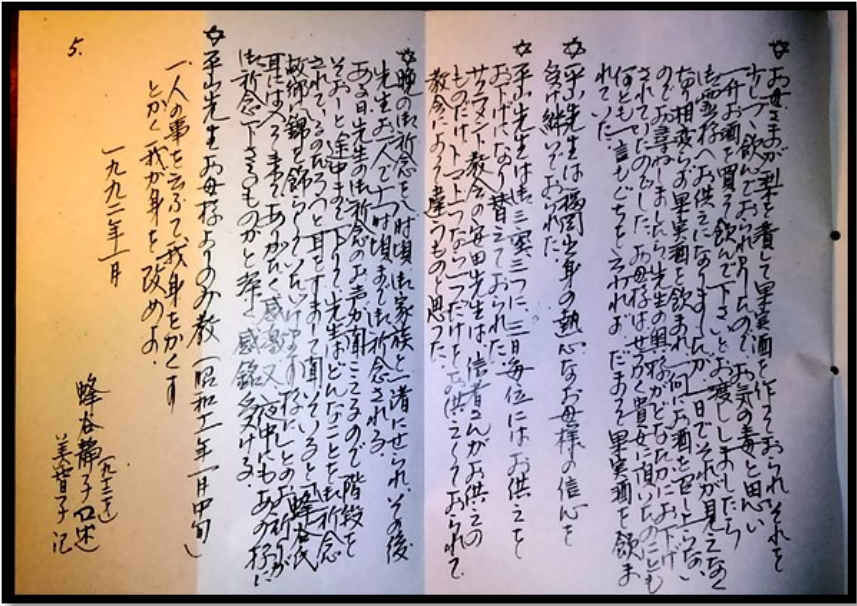 ☆お母さまが梨を漬して果実酒を作っておられ、それを
少しづゝ飲んでおられましたので、お気の毒と思い
一升お酒を買って飲んで下さいとお渡ししましたら
御霊様へお供えになりましたが一日でそれが見えなく
なり相変らず果実酒を飲まれ一向にお酒を召し上らない
のでお尋ねしましたら先生の奥様がどなたかにお下げ
されていたのでした。お母様はせっかく貴女に頂いたのにとも
何とも一言もぐちを云われず、だまって果実酒を飲ま
れていた。
☆平山先生は福岡出身の熱心なお母様の信心を
受け継いでおられた。
☆平山先生は御三宝三つに、三日毎位にはお供えを
お下げになり替えておられた。
サクラメント教会の安田先生は、信者さんがお供えの
ものだけ、トマト一つなら一つだけをお供えしておられて
教会によって違うものと思った。
☆晩の御祈念を八時頃御家族と済にせられ、その後
先生お一人で十一時頃まで御祈念される。
ある日先生の御祈念のお声が聞こえるので階段を
そおーと途中まで下りて、先生はどんなことを御祈念
されているのだろうと耳をすまして聞いていると「蜂谷氏
故郷に錦を飾らして
耳に入って来てありがたく感激、又夜中にもあの様に
御祈念下さるものかと深く感銘受ける。
☆平山先生お母様よりのみ教（昭和十一年一月中旬）
一、人の事を云ふて我身をかくす
とかく我が身を改めよ。
一九九二年一月
蜂谷靜子口述
（九十二才）
美智子記
5.